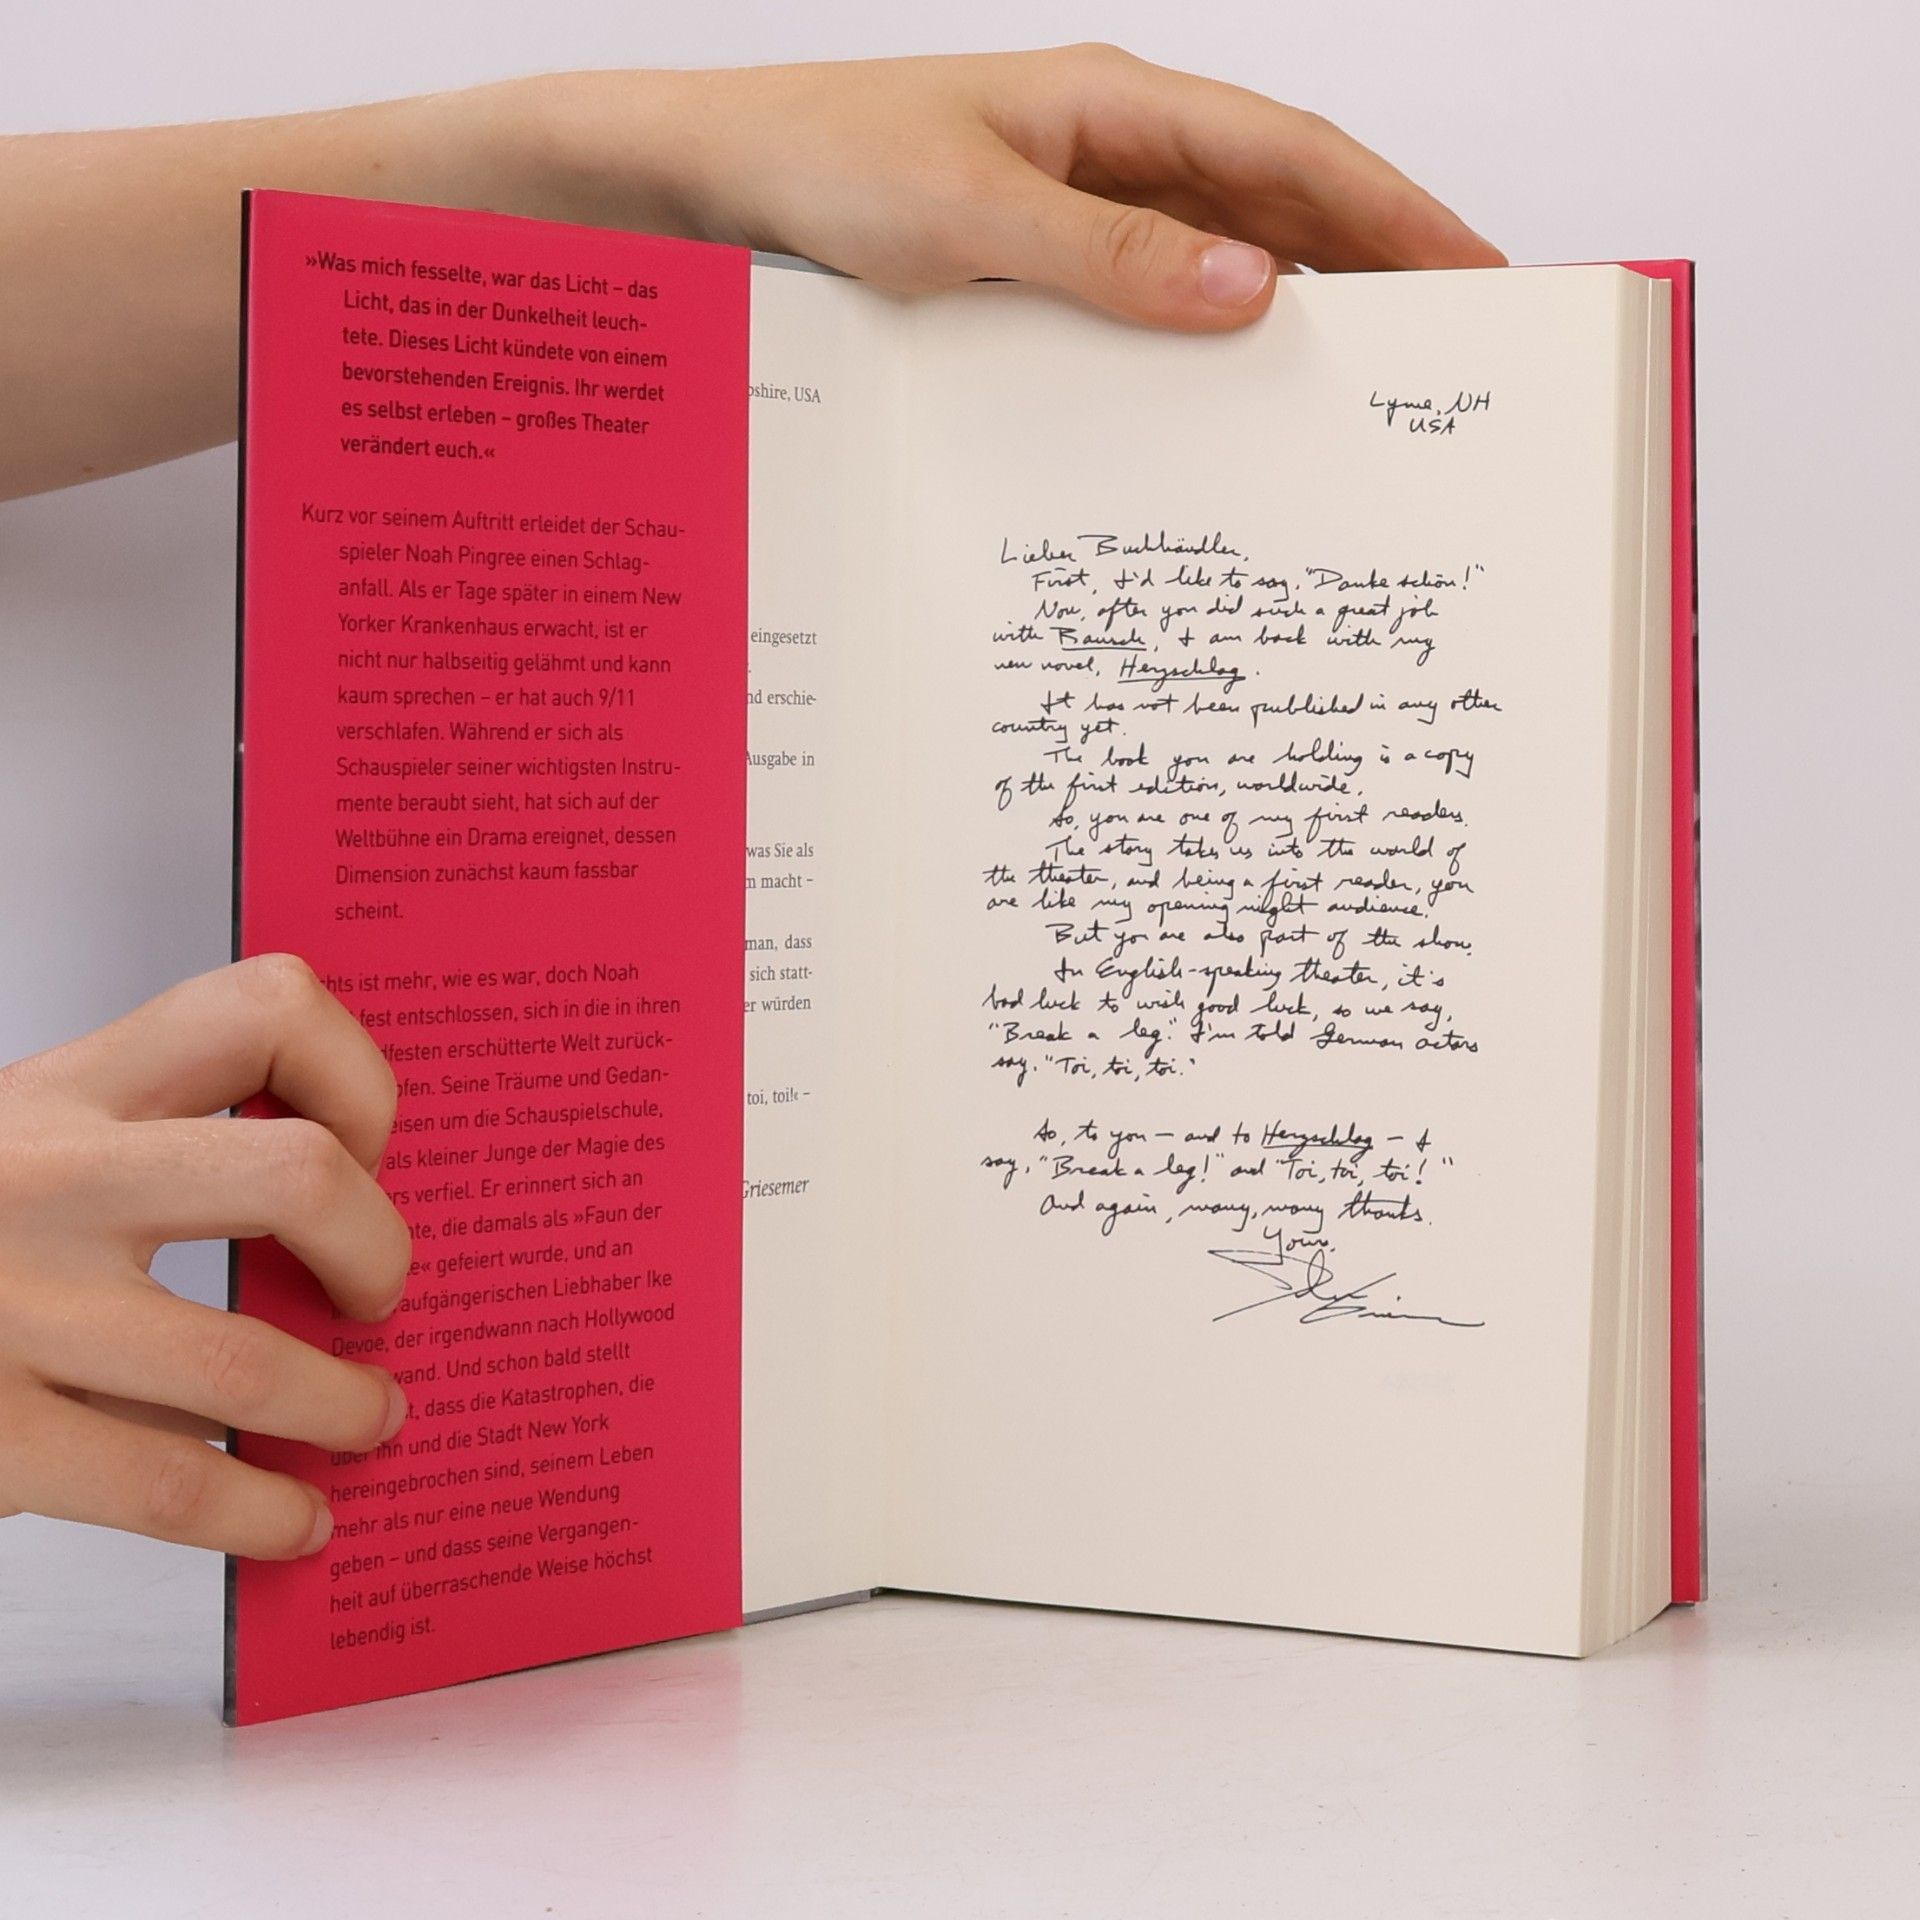 »Was mich fesselte, war das Licht – das
Licht, das in der Dunkelheit leuch-
tete. Dieses Licht kündete von einem
bevorstehenden Ereignis. Ihr werdet
es selbst erleben – großes Theater
verändert euch.«
Kurz vor seinem Auftritt erleidet der Schau-
spieler Noah Pingree einen Schlag-
anfall. Als er Tage später in einem New
Yorker Krankenhaus erwacht, ist er
nicht nur halbseitig gelähmt und kann
kaum sprechen – er hat auch 9/11
verschlafen. Während er sich als
Schauspieler seiner wichtigsten Instru-
mente beraubt sieht, hat sich auf der
Weltbühne ein Drama ereignet, dessen
Dimension zunächst kaum fassbar
scheint.
chts ist mehr, wie es war, doch Noah
fest entschlossen, sich in die in ihren
dfesten erschütterte Welt zurück-
pfen. Seine Träume und Gedan-
eisen um die Schauspielschule,
als kleiner Junge der Magie des
rs verfiel. Er erinnert sich an
nte, die damals als »Faun der
te« gefeiert wurde, und an
aufgängerischen Liebhaber Ike
Devoe, der irgendwann nach Hollywood
wand. Und schon bald stellt
t, dass die Katastrophen, die
über ihn und die Stadt New York
hereingebrochen sind, seinem Leben
mehr als nur eine neue Wendung
geben – und dass seine Vergangen-
heit auf überraschende Weise höchst
lebendig ist.
pshire, USA
eingesetzt
nd erschie-
Ausgabe in
was Sie als
m macht –
man, dass
sich statt-
er würden
toi, toi!« –
Griesemer
Lyme, NH
USA
Lieber Buchhändler,
First, I'd like to say, "Danke schön!"
Now, after you did such a great job
with Rausch, I am back with my
new novel, Herzschlag.
It has not been published in any other
country yet.
The book you are holding is a copy
of the first edition, worldwide.
So, you are one of my first readers.
The story takes us into the world of
the theater, and being a first reader, you
are like my opening night audience.
But you are also part of the show.
In English-speaking theater, it's
bad luck to wish good luck, so we say,
"Break a leg." I'm told German actors
say, "Toi, toi, toi."
So, to you – and to Herzschlag – I
say, "Break a leg!" and "Toi, toi, toi!"
And again, many, many thanks.
Yours,